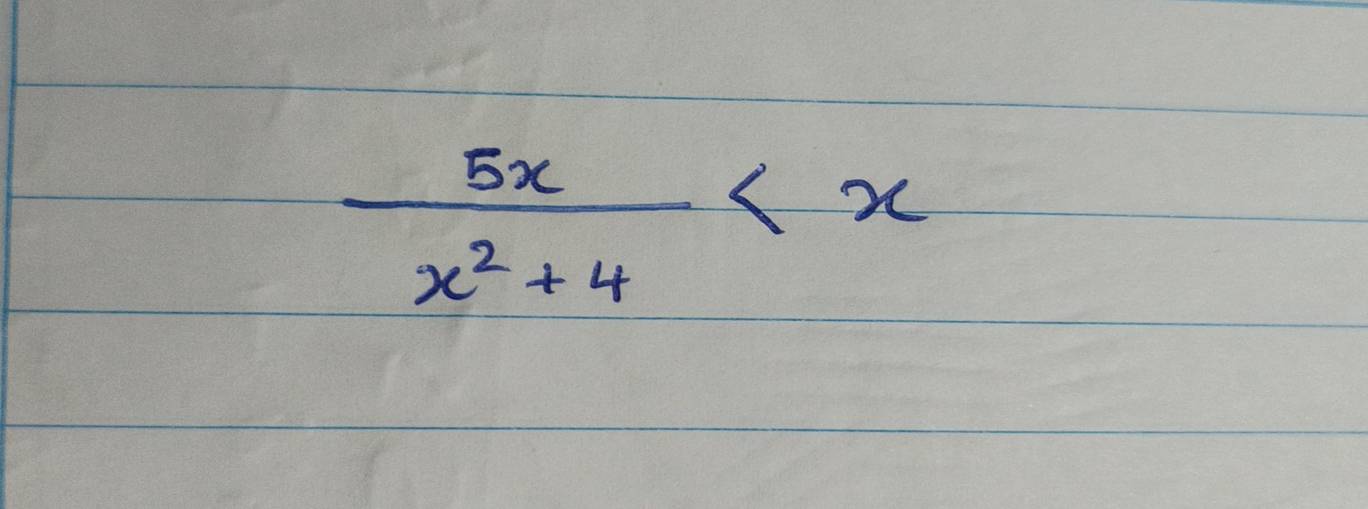 5x / (x² + 4) < x